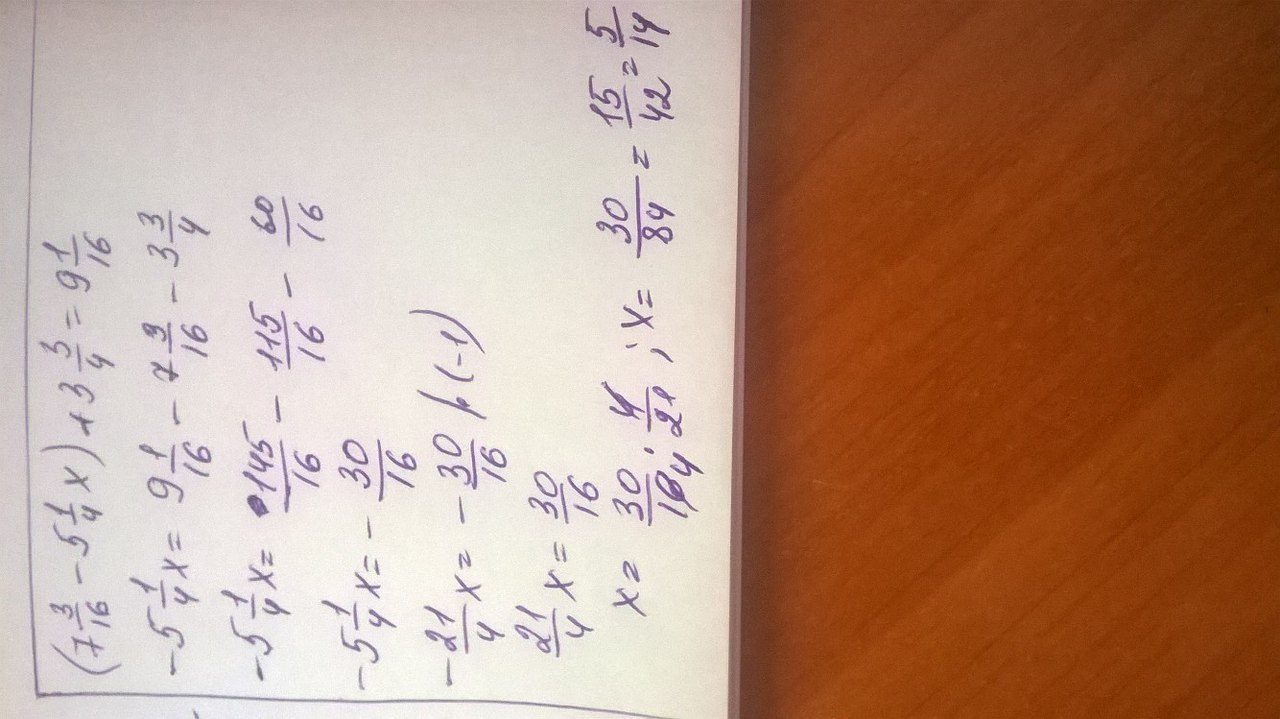 (7 3/16 - 5 1/4 x) + 3 3/4 = 9 1/16
-5 1/4 x = 9 1/16 - 7 3/16 - 3 3/4
-5 1/4 x = 145/16 - 115/16 - 60/16
-5 1/4 x = - 30/16
- 21/4 x = - 30/16 /·(-1)
21/4 x = 30/16
x = 30/16 4 · 4/21 ; x = 30/84 = 15/42 = 5/14